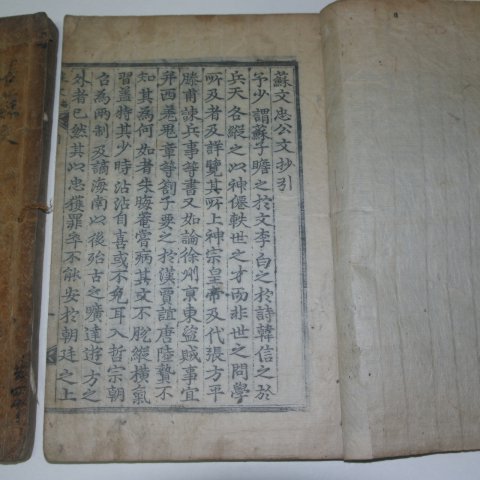 蘇文忠公文抄引
予少謂蘇子瞻之於文李白之於詩韓信之於
兵天各縱之以神僊軼世之才而非世之問學
所及者及詳覽其所上神宗皇帝及代張方平
滕甫諫兵事等書又如論徐州京東盜賊事宜
幷西羗鬼章等劄子要之於漢賈誼唐陸贄不
知其爲何如者朱晦菴嘗病其文不脫縱橫氣
習盖特其少時沾沾自喜或不免耳入哲宗朝
召爲兩制及謫海南以後殆古之曠達遊方之
外者已然其以忠獲罪卒不能安於朝廷之上